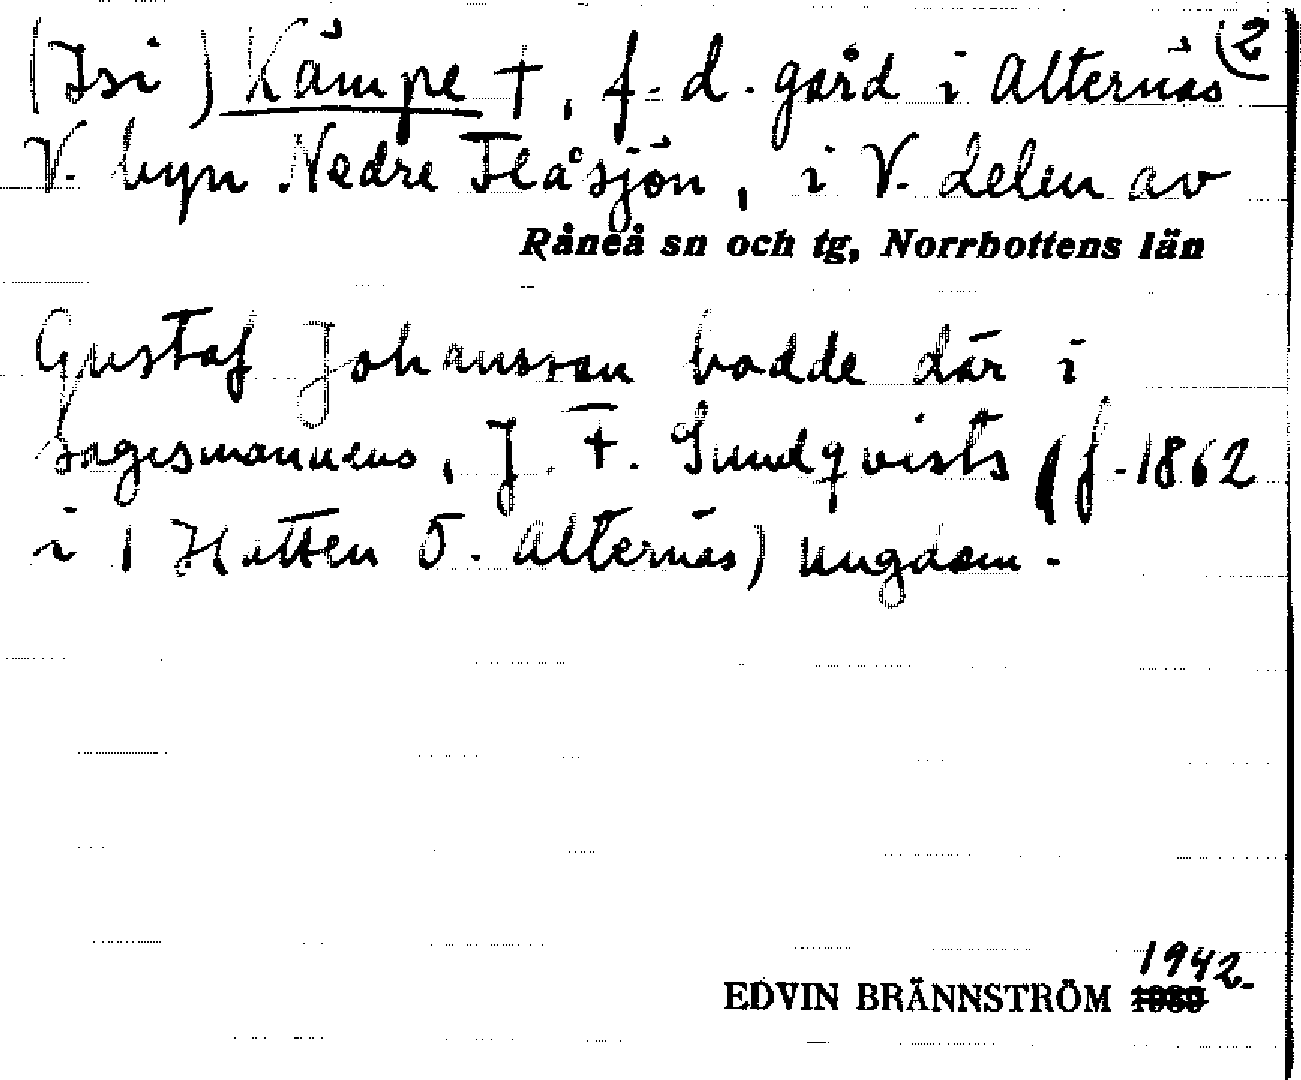 (Isi) Kämpe †, f.d. gård i Alternäs (2
V. byn Nedre Flåsjön, i V. delen av
Råneå sn och tg, Norrbottens län
Gustaf Johansson bodde där i
sagesmannens, J. F. Sundqvists (f. 1862
i 1 Hutten Ö. Alternäs) ungdom.
1942.
EDVIN BRÄNNSTRÖM 1939